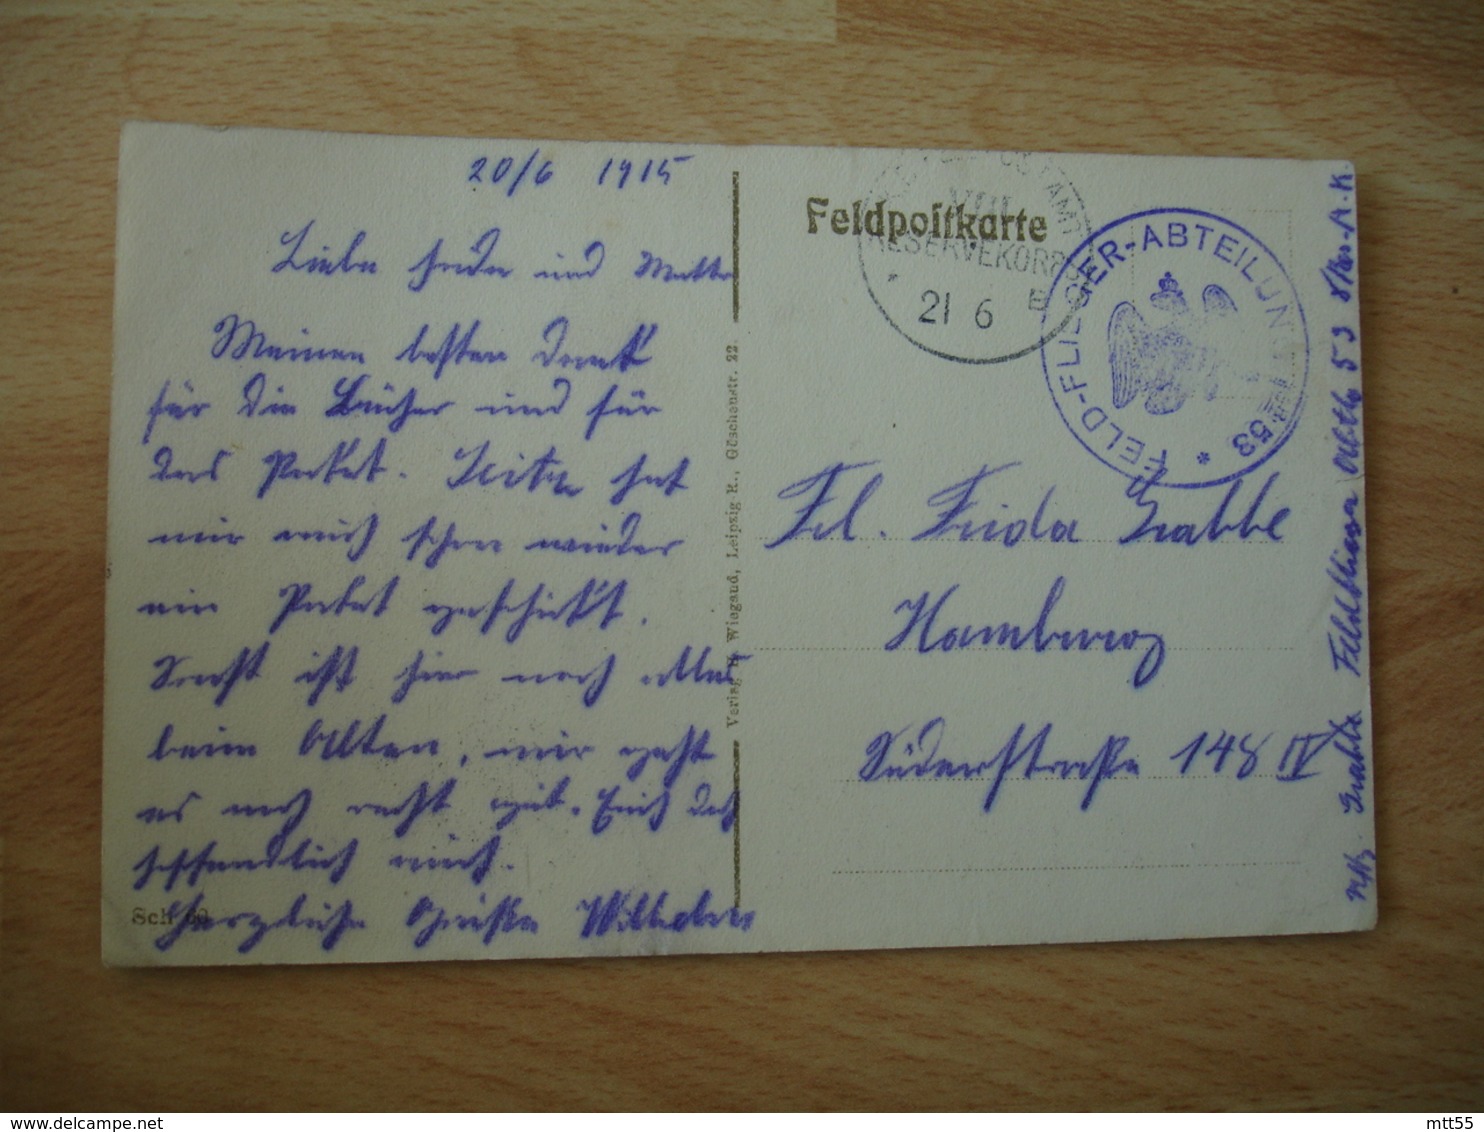 20/6 1915
Liebe Frida und Mutter
Meinen besten Dank
für die Bücher und für
das Paket. hat
mir auch schon wieder
ein Paket geschickt.
Sonst ist hier noch alles
beim Alten, mir geht
es noch recht gut. Euch doch
hoffendlich auch.
Herzliche Grüße Wilhelm
Sch 60
Verlag R. Wiegand, Leipzig R., Göschenstr. 22.
Feldpostkarte
RESERVEKORPS
21 6
FELD-FLIEGER-ABTEILUNG 53 *
Frl. Frida Grabbe
Hamburg
Süderstraße 148 IV
Grabbe Feldflieger Abtlg 53 8 Res. A.K.